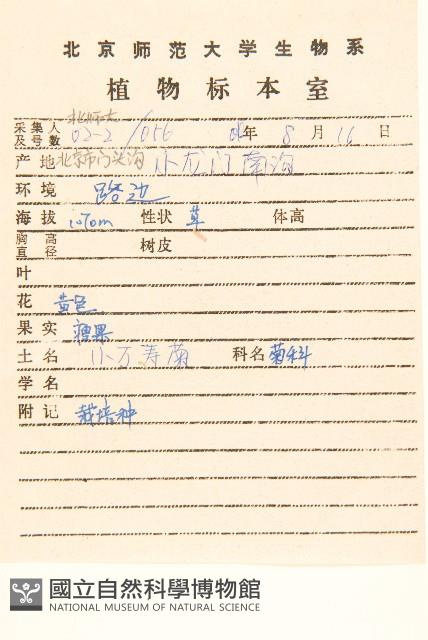 北京师范大学生物系
植物标本室
北师大
采集人及号数 02-2/056 年 8 月 16 日
产地 北京市门头沟 小龙门南沟
环境 路边
海拔 1070m 性状 草 体高
胸高直径 树皮
叶
花 黄色
果实 瘦果
土名 小万寿菊 科名 菊科
学名
附记 栽培种
國立自然科學博物館
NATIONAL MUSEUM OF NATURAL SCIENCE